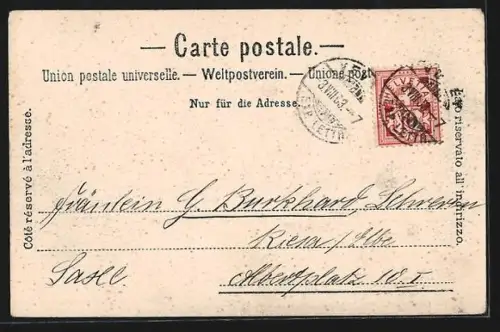 — Carte postale. —
Union postale universelle. — Weltpostverein. — Unione post
Nur für die Adresse.
Côté réservé à l'adresse.
Lato riservato all'indirizzo.
Fräulein G. Burkhard,
Riesa / Elbe
Albertplatz 10. I